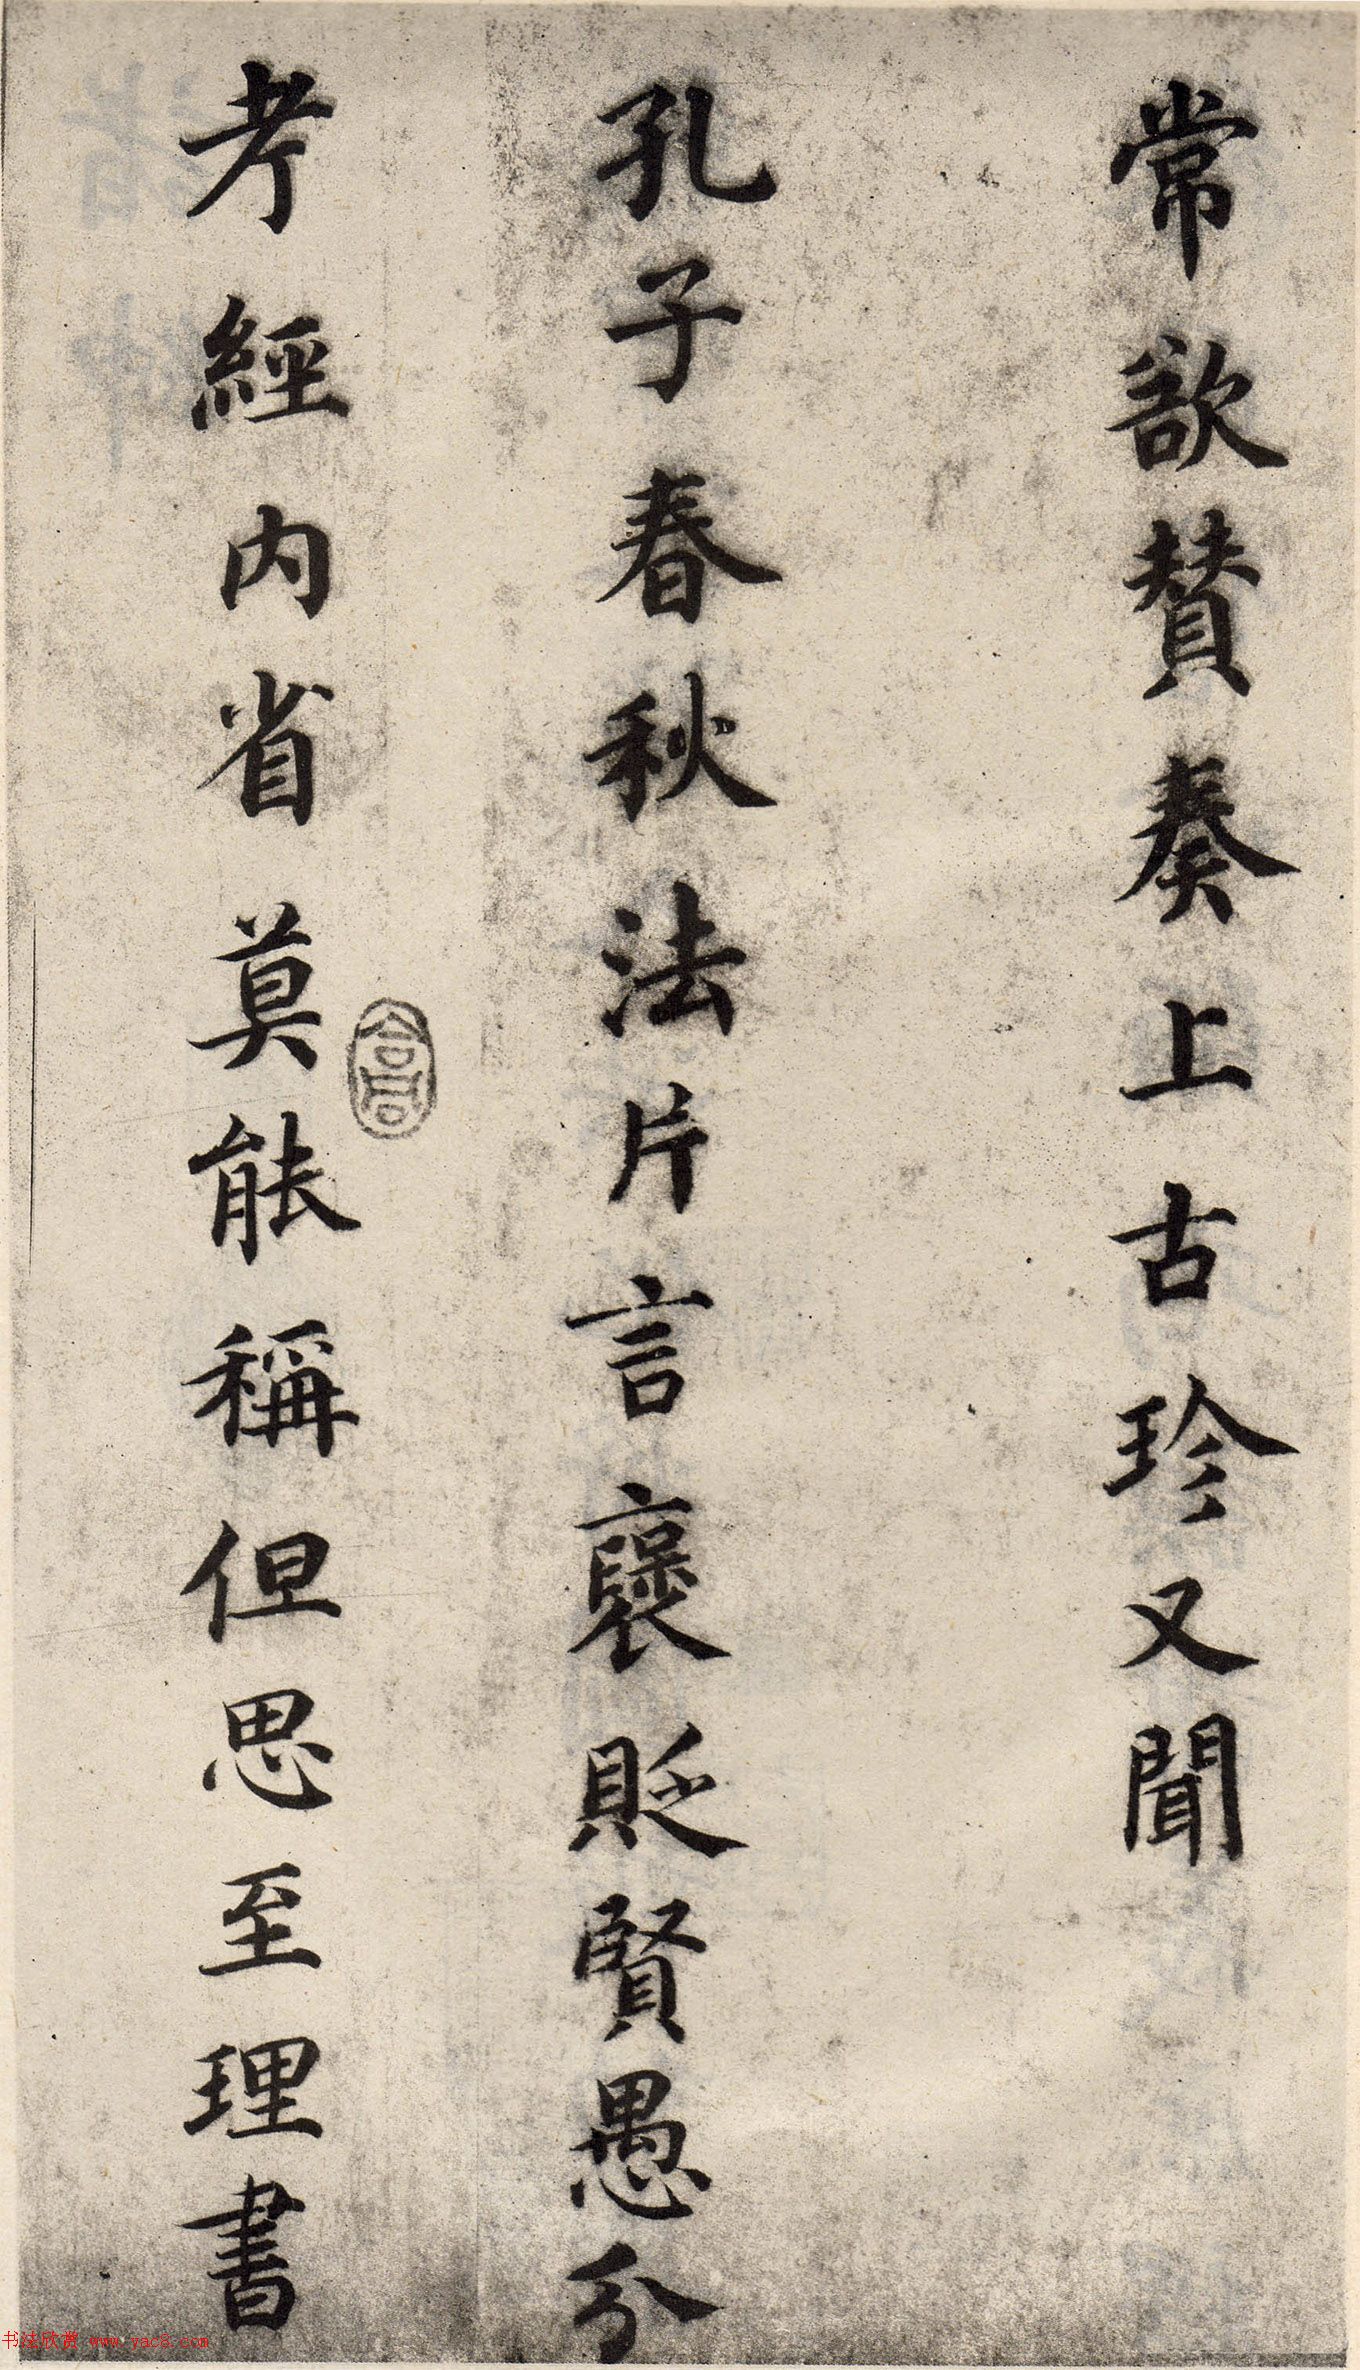 常欲賛奏上古珍又聞
孔子春秋法片言襃貶賢愚分
考經內省莫能稱但思至理書
书法欣赏 www.yac8.com